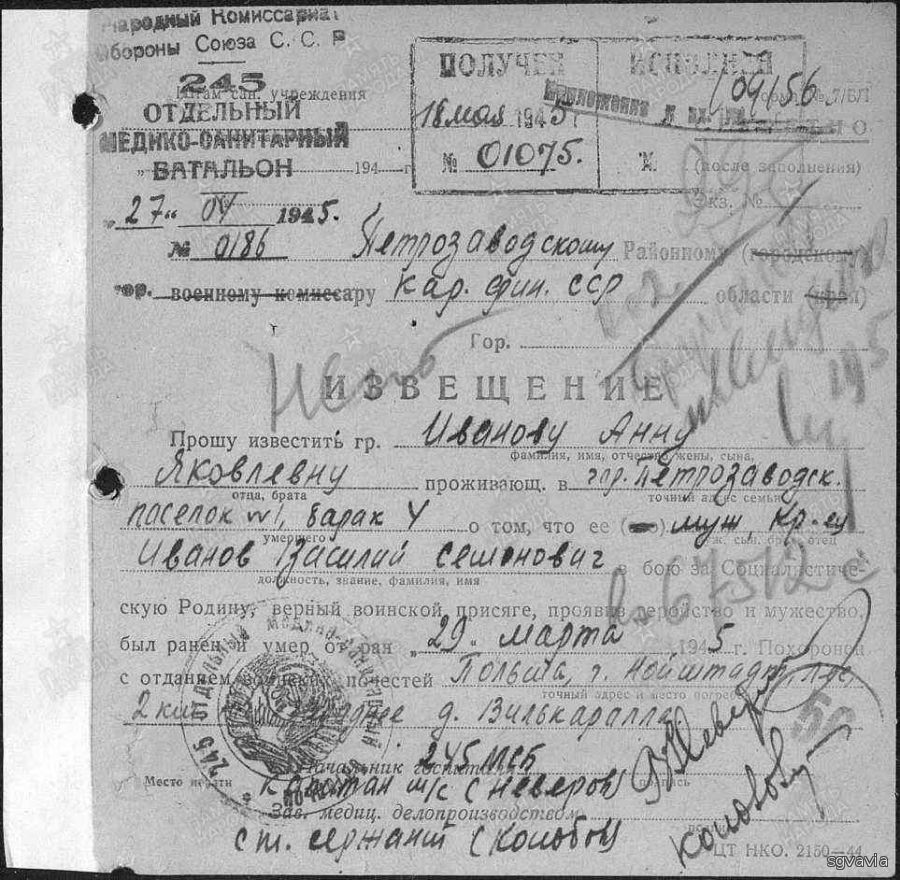 Народный Комиссариат
Обороны Союза С. С. Р
245
Штамп сан. учреждения
ОТДЕЛЬНЫЙ
МЕДИКО-САНИТАРНЫЙ
БАТАЛЬОН
194 г.
"27" 04 1945.
№ 0186
ПОЛУЧЕН
18 мая 1945 г
№ 01075.
ИСПОЛНЕН
Приложение к вх.
04156
№ 7/БЛ
(после заполнения)
Экз. №
Петрозаводскому Районному (городскому)
гор. военному комиссару Кар. фин. ССР области (края)
Гор.
ИЗВЕЩЕНИЕ
Прошу известить гр. Иванову Анну
фамилия, имя, отчество жены, сына,
Яковлевну проживающ. в гор. Петрозаводск.
отца, брата
точный адрес семьи
поселок №1, барак 4 о том, что ее муж Кр-ец
умершего
муж, сын, брат, отец
Иванов Василий Семенович в бою за Социалистиче-
должность, звание, фамилия, имя
скую Родину, верный воинской присяге, проявив геройство и мужество,
был ранен и умер от ран "29" марта 1945 г. Похоронен
с отданием воинских почестей Польша, г. Нойштадт
точный адрес и место погребения
2 км. д. Вилькаралла.
245 ОТДЕЛЬНЫЙ МЕДИКО-САНИТАРНЫЙ
Начальник госпиталя 245 МСБ
Место печати
Капитан м/с (Неверов)
подпись
Зав. медиц. делопроизводством
ст. сержант (Конобов)
ЦТ НКО. 2150—44
sgvavia